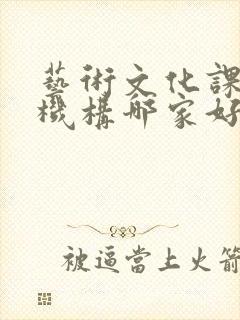 藝術文化課
機構哪家好
被逼當上火箭